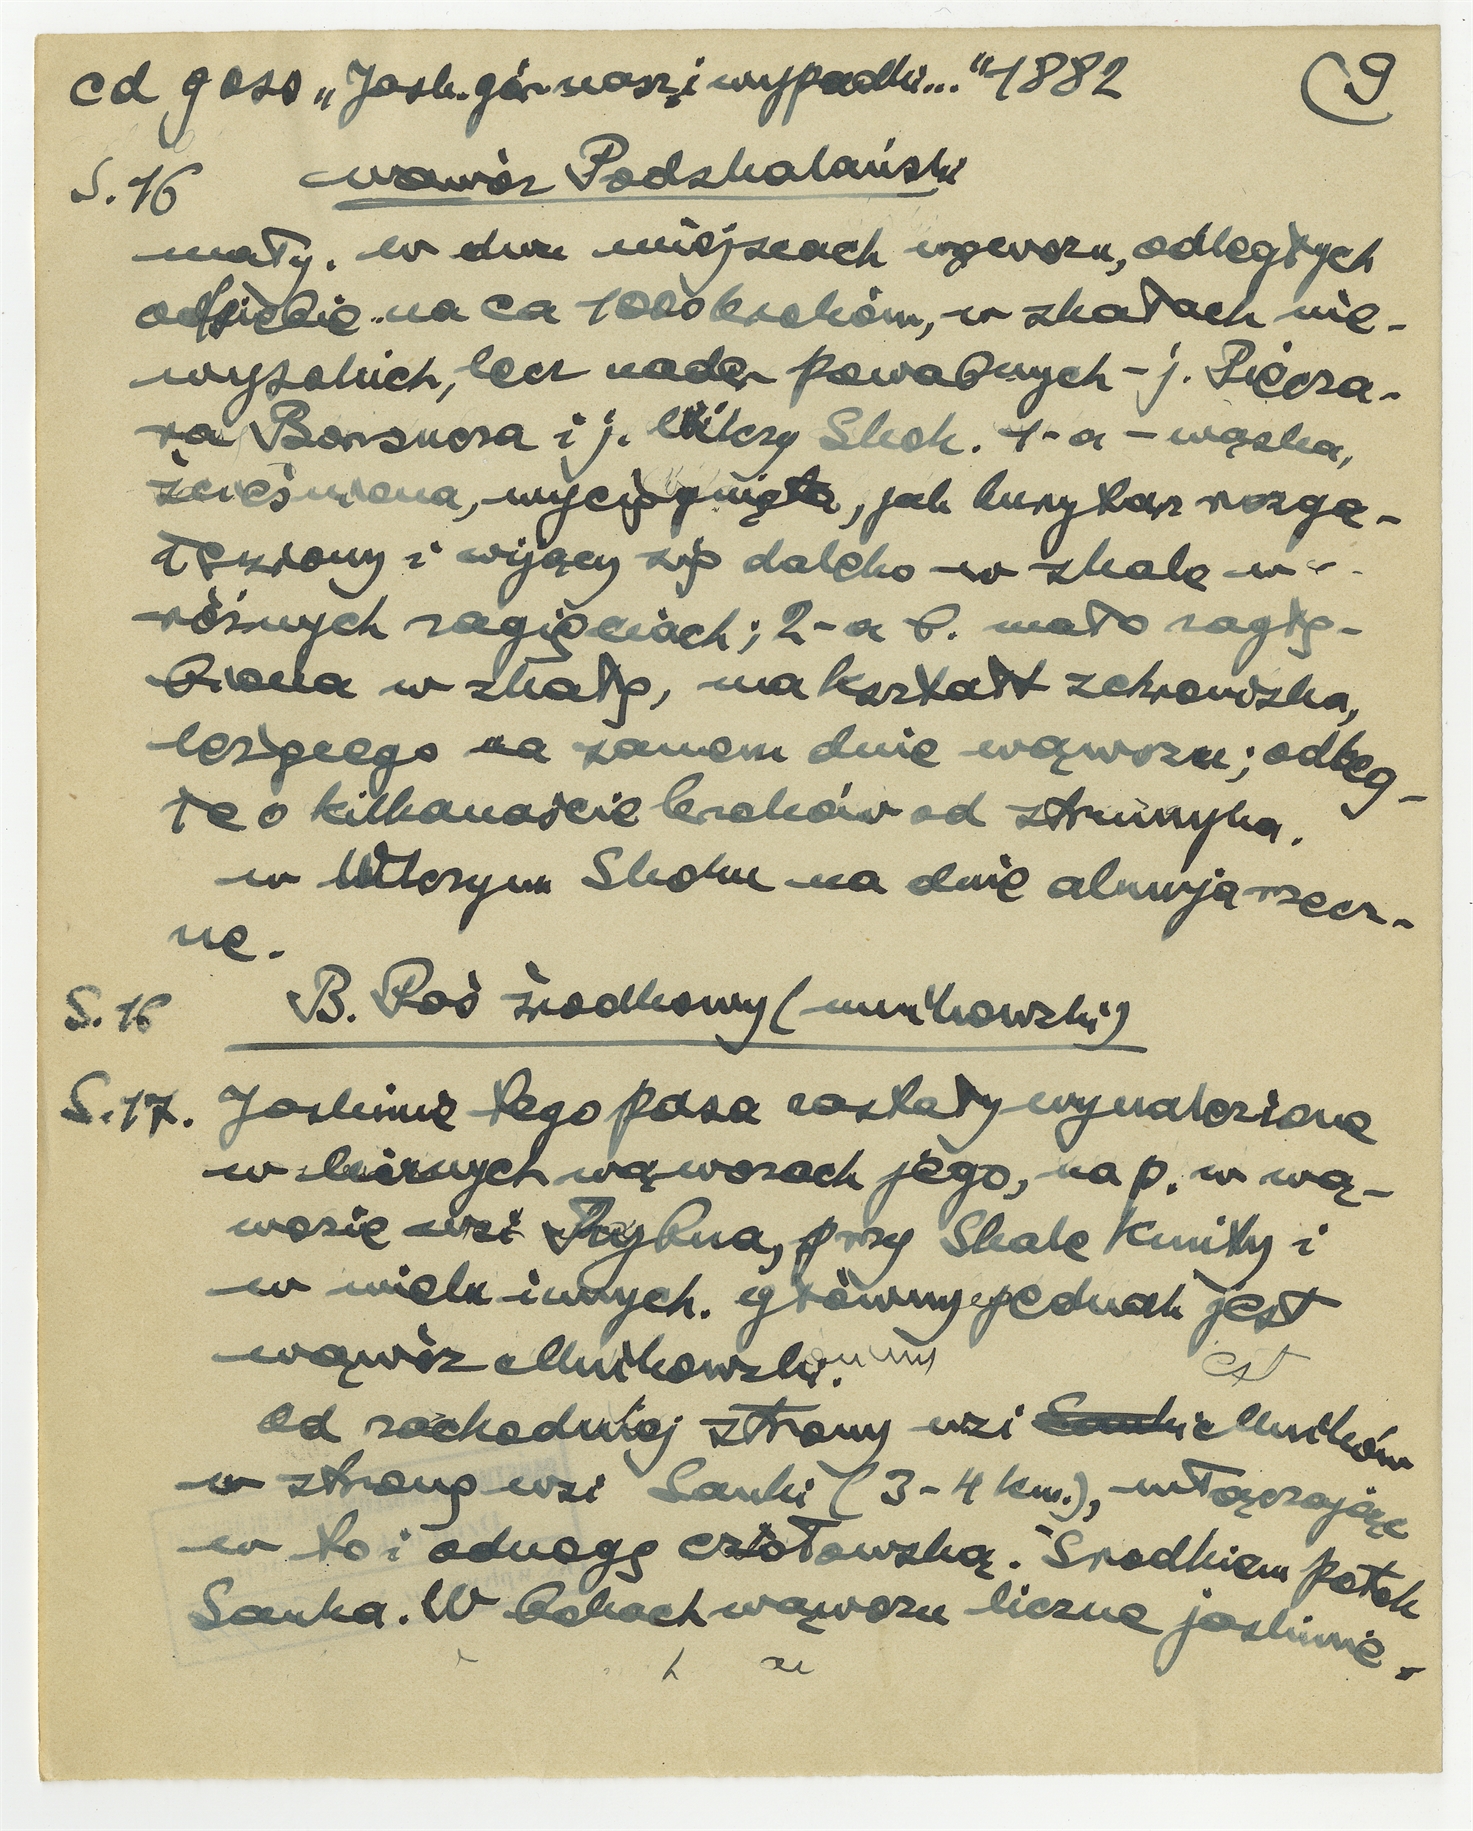 cd G. Osso „Jask. gór. nasz. i wypadki..." 1882 9
S. 16 wąwóz Podskalański
mały. w dwu miejscach wąwozu, odległych
od siebie na ca 1000 kroków, w skałach nie-
wysokich, lecz nader powabnych – j. Piecza-
ra Borsucza i j. Wilczy Skok. 1-a – wąska,
ścieśniona, wyciągnięta, jak kurytarz rozga-
łęziony i wijący się daleko w skale w
różnych zagięciach; 2-a b. mało zagłę-
biona w skałę, ma kształt schroniska,
leżącego na samem dnie wąwozu; odleg-
łe o kilkanaście kroków od strumyka.
w Wilczym Skoku na dnie aluwja rzecz-
ne.
S. 16 B. Pas środkowy (mnikowski)
S. 17. Jaskinie tego pasa zostały wynalezione
w licznych wąwozach jego, na p. w wą-
wozie wsi Rybna, przy Skale Kmity i
w wielu innych. główny jednak jest
wąwóz Mnikowski.
Od zachodniej strony wsi Mników
w stronę wsi Sanki (3-4 km.), włączając
w to i odnogę czołowską. Środkiem potok
Sanka. W bokach wąwozu liczne jaskinie.